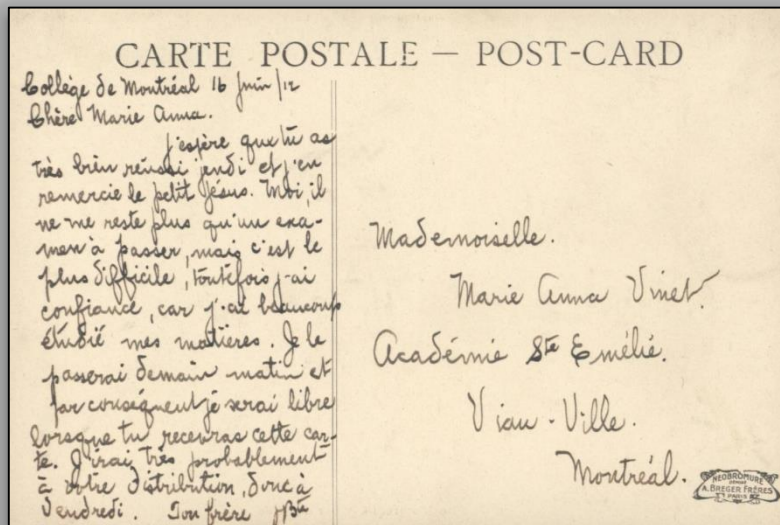 CARTE POSTALE — POST-CARD
Collège de Montréal 16 Juin /12
Chère Marie Anna.
J'espère que tu as
très bien réussi jeudi et j'en
remercie le petit Jésus. Moi, il
ne me reste plus qu'un exa-
men à passer, mais c'est le
plus difficile, toutefois j'ai
confiance, car j'ai beaucoup
étudié mes matières. Je le
passerai demain matin et
par conséquent je serai libre
lorsque tu recevras cette car-
te. J'irai très probablement
à votre distribution, donc à
Vendredi. Ton frère
Mademoiselle.
Marie Anna Vinet.
Académie Ste Emélie.
Viau-Ville.
Montréal.
NEOBROMURE
A. BREGER FRÈRES
PARIS